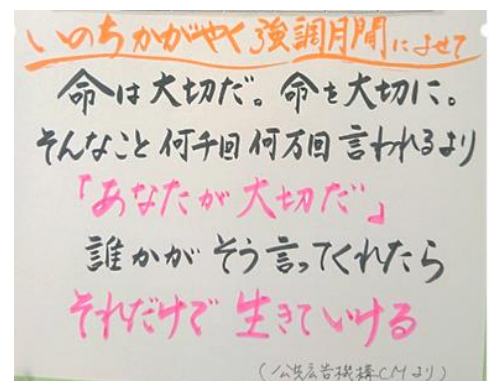 いのちかがやく強調月間によせて
命は大切だ。命を大切に。
そんなこと何千回何万回言われるより
「あなたが大切だ」
誰かがそう言ってくれたら
それだけで生きていける
(公共広告機構CMより)